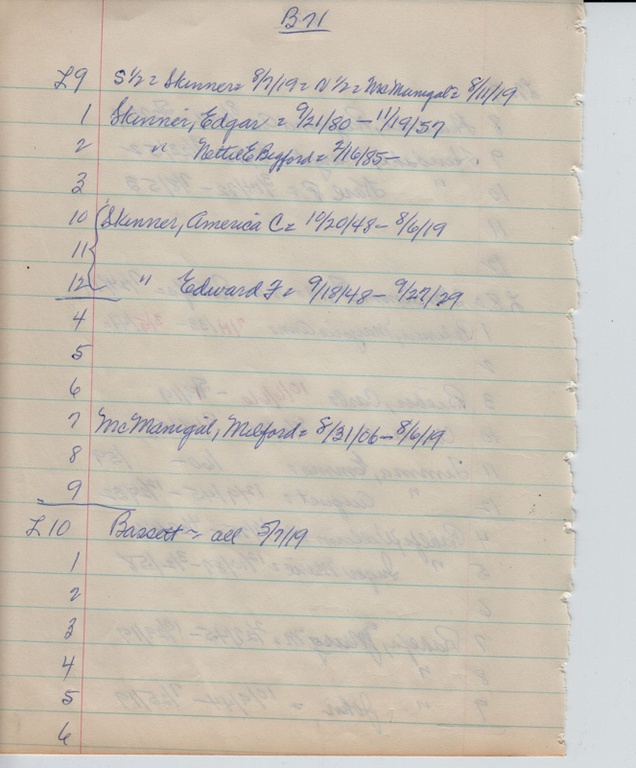 B71
L9 S 1/2 = Skinner = 8/7/19 = N 1/2 = McManigal = 8/11/19
1 Skinner, Edgar = 9/21/80 - 11/19/57
2 " Nettie E Bigford = 2/16/85 -
3
10 Skinner, America C = 10/20/48 - 8/6/19
11
12 " Edward F = 9/18/48 - 9/27/29
4
5
6
7 McManigal, Milford = 8/31/06 - 8/6/19
8
9
L10 Bassett ~ all 5/7/19
1
2
3
4
5
6